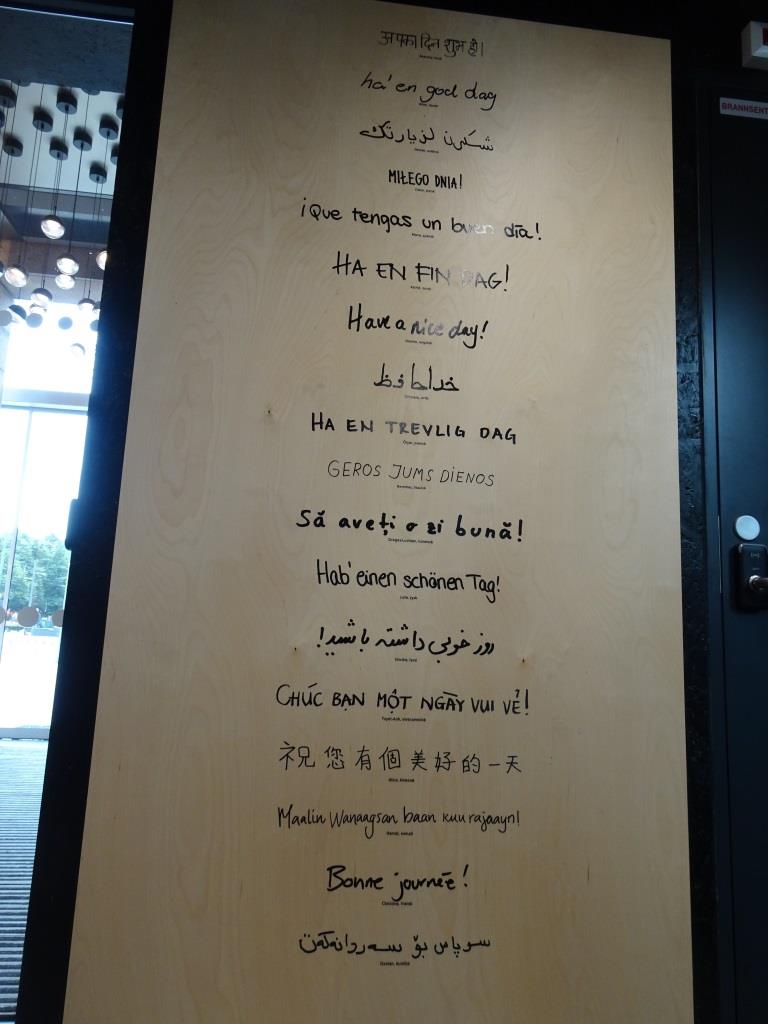 आपका दिन शुभ हो।
ha' en god dag
شكرن لزيارتك
MIŁEGO DNIA!
¡Que tengas un buen día!
HA EN FIN DAG!
Have a nice day!
خداحافظ
HA EN TREVLIG DAG
GEROS JUMS DIENOS
Să aveți o zi bună!
Hab' einen schönen Tag!
روز خوبی داشته باشید!
CHÚC BẠN MỘT NGÀY VUI VẺ!
祝您有個美好的一天
Maalin Wanaagsan baan kuu rajaayn!
Bonne journée!
سوپاس بۆ سەردانەکەت
BRANNSENT